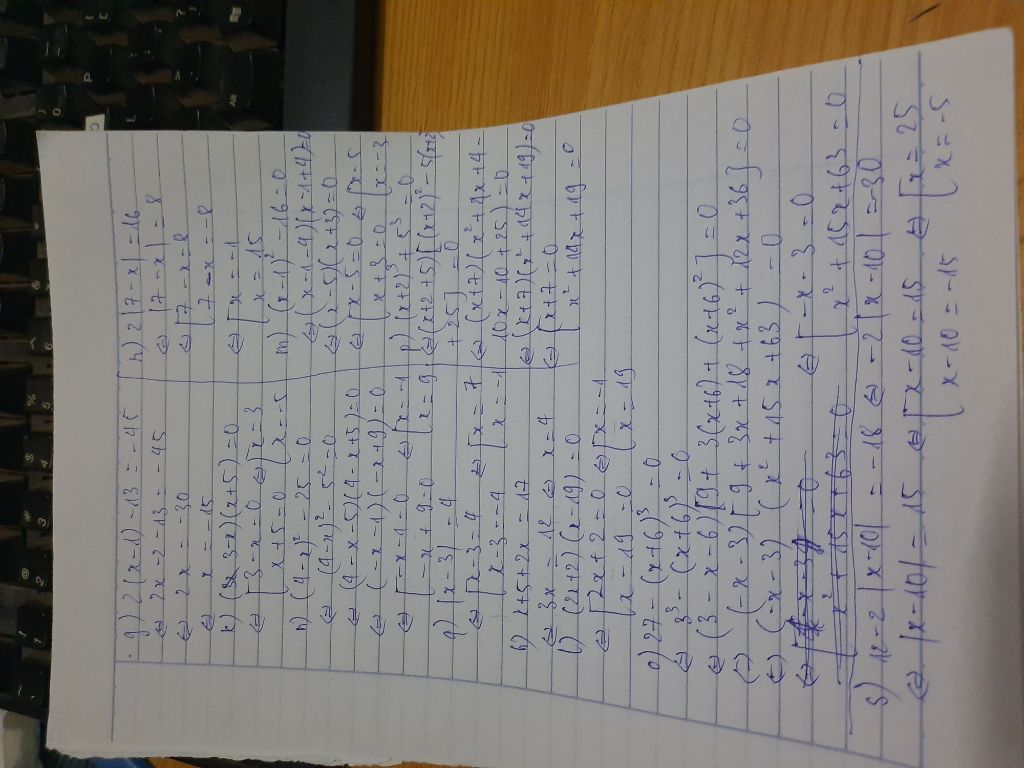 g) 2(x-1)-13 = -45
⇔ 2x-2-13 = -45
⇔ 2x = -30
⇔ x = -15
k) (3-x)(x+5)=0
⇔ [3-x=0 ⇔ [x=3
[x+5=0 [x=-5
n) (4-x)²-25=0
⇔ (4-x)²-5²=0
⇔ (4-x-5)(4-x+5)=0
⇔ (-x-1)(-x+9)=0
⇔ [-x-1=0 ⇔ [x=-1
[-x+9=0 [x=9
q) |x-3|=4
⇔ [x-3=4 ⇔ [x=7
[x-3=-4 [x=-1
h) x+5+2x=17
⇔ 3x=12 ⇔ x=4
l) (2x+2)(x-19)=0
⇔ [2x+2=0 ⇔ [x=-1
[x-19=0 [x=19
o) 27-(x+6)³=0
⇔ 3³-(x+6)³=0
⇔ (3-x-6)[9+3(x+6)+(x+6)²]=0
⇔ (-x-3)[9+3x+18+x²+12x+36]=0
⇔ (-x-3)(x²+15x+63)=0
⇔ [-x-3=0
[x²+15x+63=0
⇔ [-x-3=0
[x²+15x+63=0
s) 12-2|x-10|=-18 ⇔ -2|x-10|=-30
⇔ |x-10|=15 ⇔ [x-10=15 ⇔ [x=25
[x-10=-15 [x=-5
r) 2|7-x|=16
⇔ |7-x|=8
⇔ [7-x=8
[7-x=-8
⇔ [x=-1
[x=15
m) (x-1)²-16=0
⇔ (x-1-4)(x-1+4)=0
⇔ (x-5)(x+3)=0
⇔ [x-5=0 ⇔ [x=5
[x+3=0 [x=-3
p) (x+2)³+5³=0
⇔ (x+2+5)[(x+2)²-5(x+2)
+25]=0
⇔ (x+7)(x²+4x+4-
10x-10+25)=0
⇔ (x+7)(x²+14x+19)=0
⇔ [x+7=0
[x²+14x+19=0